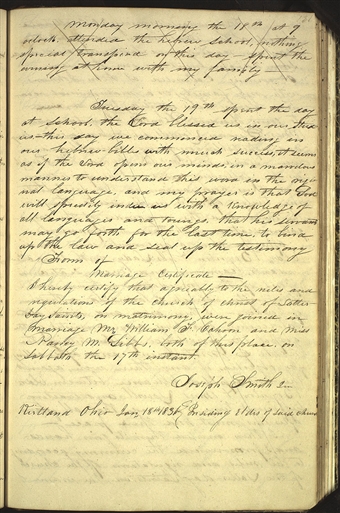 Monday morning the 18th at 9
oclock, attended the hebrew School, nothing
special transpired on this day spent the
evening at home with my family
Tuesday the 19th spent the day
at School. the Lord blessed us in our stud
ies. this day we commenced reading in
our hebrew bibles with much success, it seems
as if the Lord opens our minds, in a marvelous
manner to understand his word in the orig
inal language, and my prayer is that God
will speedily indue us with a knowledge of
all languages and toungs, that his servants
may go forth for the last time, to bind
up the law and seal up the testimony
Form of
Marriage Certificate —
I hereby certify that agreeable to the rules and
regulations of the church of christ of Latter-
Day Saints, on matrimony, were joined in
marriage Mr William F. Cahoon and Miss
Nancy M. Gibbs, both of this place. on
Sabbath the 17th instant.
Joseph Smith
Kirtland Ohio Jan 18th 1836 Presiding Elder of said church